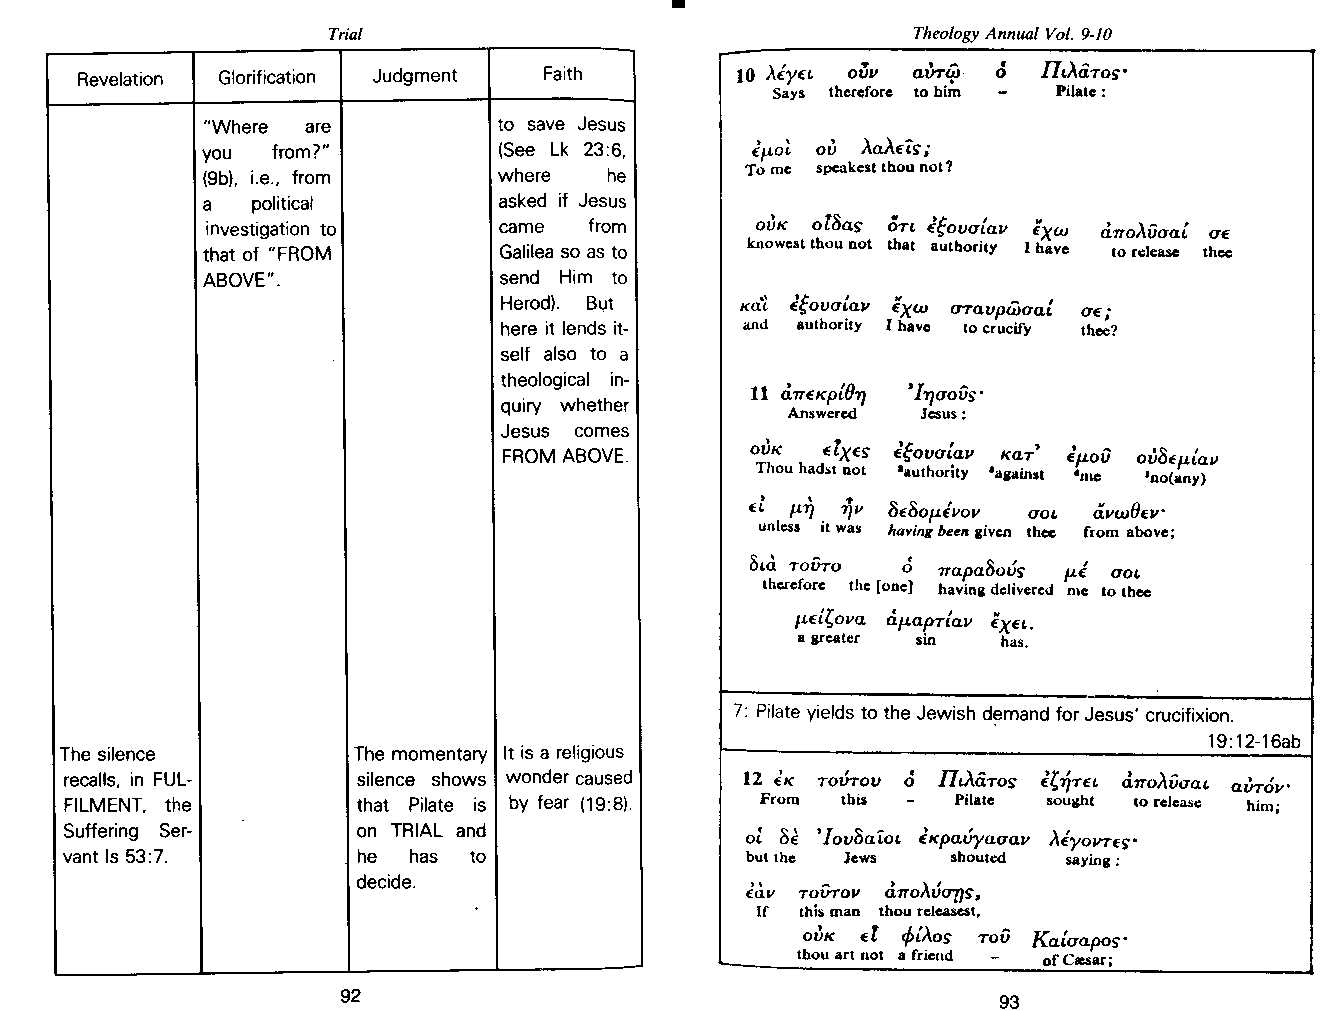 Trial
Revelation Glorification Judgment Faith
"Where are
you from?"
(9b), i.e., from
a political
investigation to
that of "FROM
ABOVE".
to save Jesus
(See Lk 23:6,
where he
asked if Jesus
came from
Galilea so as to
send Him to
Herod). But
here it lends it-
self also to a
theological in-
quiry whether
Jesus comes
FROM ABOVE.
The silence
recalls, in FUL-
FILMENT, the
Suffering Ser-
vant Is 53:7.
The momentary
silence shows
that Pilate is
on TRIAL and
he has to
decide.
It is a religious
wonder caused
by fear (19:8).
92
Theology Annual Vol. 9-10
10 λέγει οὖν αὐτῷ ὁ Πιλᾶτος·
Says therefore to him – Pilate :
ἐμοὶ οὐ λαλεῖς;
To me speakest thou not?
οὐκ οἶδας ὅτι ἐξουσίαν ἔχω ἀπολῦσαί σε
knowest thou not that authority I have to release thee
καὶ ἐξουσίαν ἔχω σταυρῶσαί σε;
and authority I have to crucify thee?
11 ἀπεκρίθη Ἰησοῦς·
Answered Jesus :
οὐκ εἶχες ἐξουσίαν κατ' ἐμοῦ οὐδεμίαν
Thou hadst not ²authority ³against ⁴me ¹no(any)
εἰ μὴ ἦν δεδομένον σοι ἄνωθεν·
unless it was having been given thee from above;
διὰ τοῦτο ὁ παραδούς μέ σοι
therefore the [one] having delivered me to thee
μείζονα ἁμαρτίαν ἔχει.
a greater sin has.
7: Pilate yields to the Jewish demand for Jesus' crucifixion.
19:12-16ab
12 ἐκ τούτου ὁ Πιλᾶτος ἐζήτει ἀπολῦσαι αὐτόν·
From this – Pilate sought to release him;
οἱ δὲ Ἰουδαῖοι ἐκραύγασαν λέγοντες·
but the Jews shouted saying :
ἐὰν τοῦτον ἀπολύσῃς,
If this man thou releasest,
οὐκ εἶ φίλος τοῦ Καίσαρος·
thou art not a friend – of Cæsar;
93